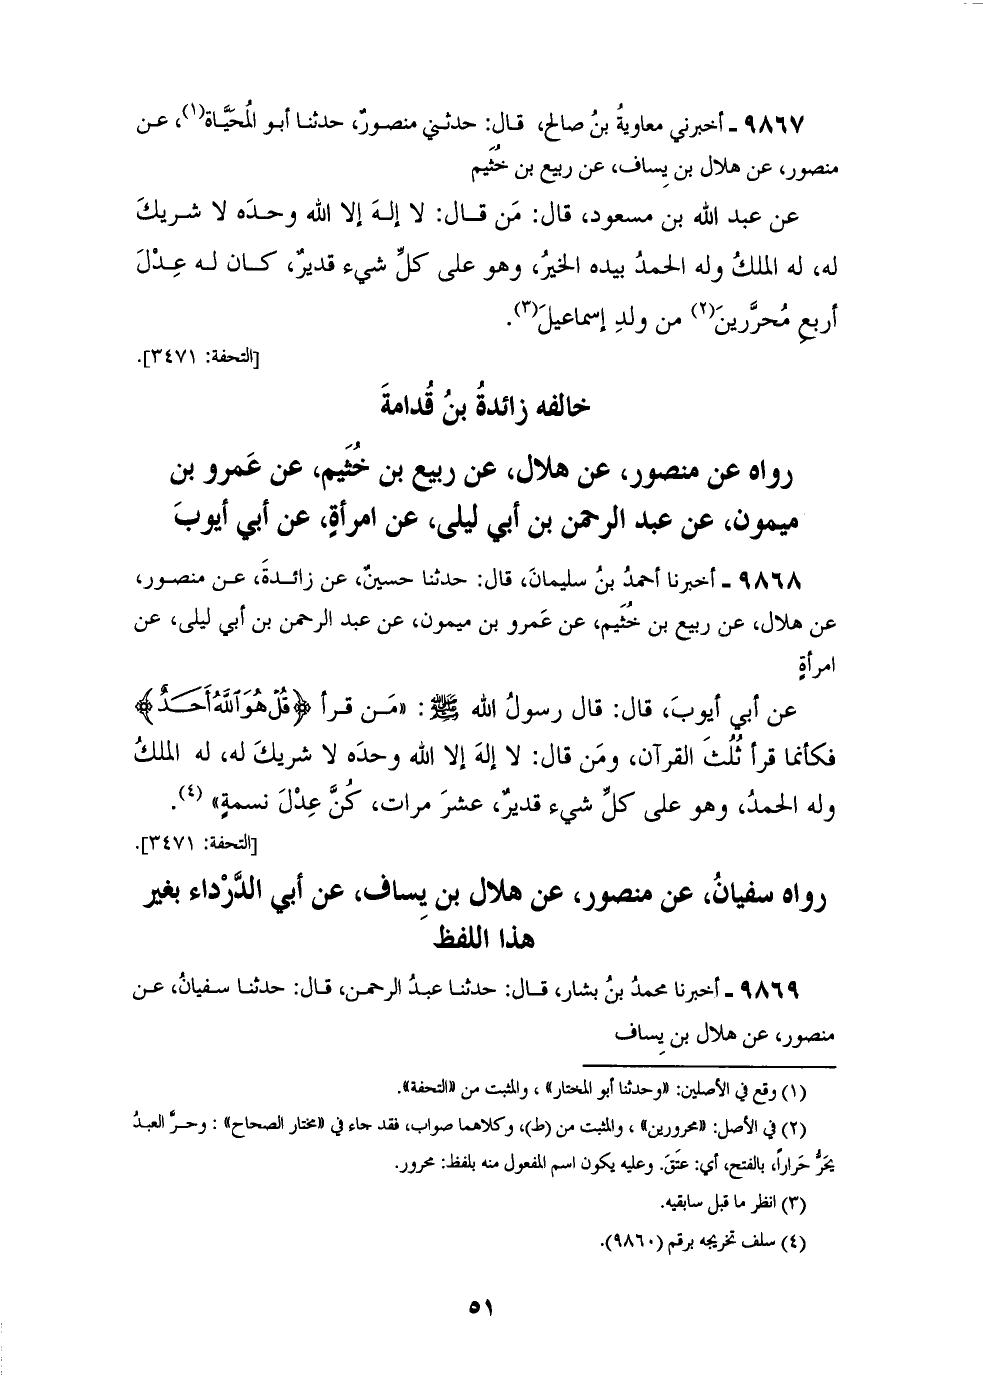 ٩٨٦٧ ـ أخبرني معاويةُ بنُ صالح، قال: حدثني منصورٌ، حدثنا أبو المُحيَّاة(١)، عن
منصور، عن هلال بن يِساف، عن ربيع بن خُثَيم
عن عبد الله بن مسعود، قال: مَن قال: لا إلهَ إلا الله وحدَه لا شريكَ
له، له الملكُ وله الحمدُ بيده الخيرُ، وهو على كلِّ شيء قديرٌ، كان له عِدْلَ
أربعِ مُحرَّرينَ(٢) من ولدِ إسماعيلَ(٣).
[التحفة: ٣٤٧١].
خالفه زائدةُ بنُ قُدامةَ
رواه عن منصور، عن هلال، عن ربيع بن خُثَيم، عن عَمرو بن
ميمون، عن عبد الرحمن بن أبي ليلى، عن امرأةٍ، عن أبي أيوبَ
٩٨٦٨ ـ أخبرنا أحمدُ بنُ سليمانَ، قال: حدثنا حسينٌ، عن زائدةَ، عن منصور،
عن هلال، عن ربيع بن خُثَيم، عن عَمرو بن ميمون، عن عبد الرحمن بن أبي ليلى، عن
امرأةٍ
عن أبي أيوبَ، قال: قال رسولُ الله ﷺ: «مَن قرأ ﴿قُلْ هُوَ ٱللَّهُ أَحَدٌ﴾
فكأنما قرأ ثُلُثَ القرآن، ومَن قال: لا إلهَ إلا الله وحدَه لا شريكَ له، له الملكُ
وله الحمدُ، وهو على كلِّ شيء قديرٌ، عشرَ مرات، كُنَّ عِدْلَ نسمةٍ» (٤).
[التحفة: ٣٤٧١].
رواه سفيانُ، عن منصور، عن هلال بن يِساف، عن أبي الدَّرْداء بغير
هذا اللفظ
٩٨٦٩ ـ أخبرنا محمدُ بنُ بشار، قال: حدثنا عبدُ الرحمن، قال: حدثنا سفيانُ، عن
منصور، عن هلال بن يِساف
(١) وقع في الأصلين: «وحدثنا أبو المختار» ، والمثبت من «التحفة».
(٢) في الأصل: «محرورين» ، والمثبت من (ط)، وكلاهما صواب، فقد جاء في «مختار الصحاح» : وحرَّ العبدُ
يَحَرُّ حَراراً، بالفتح، أي: عَتَقَ. وعليه يكون اسم المفعول منه بلفظ: محرور.
(٣) انظر ما قبل سابقيه.
(٤) سلف تخريجه برقم (٩٨٦٠).
٥١